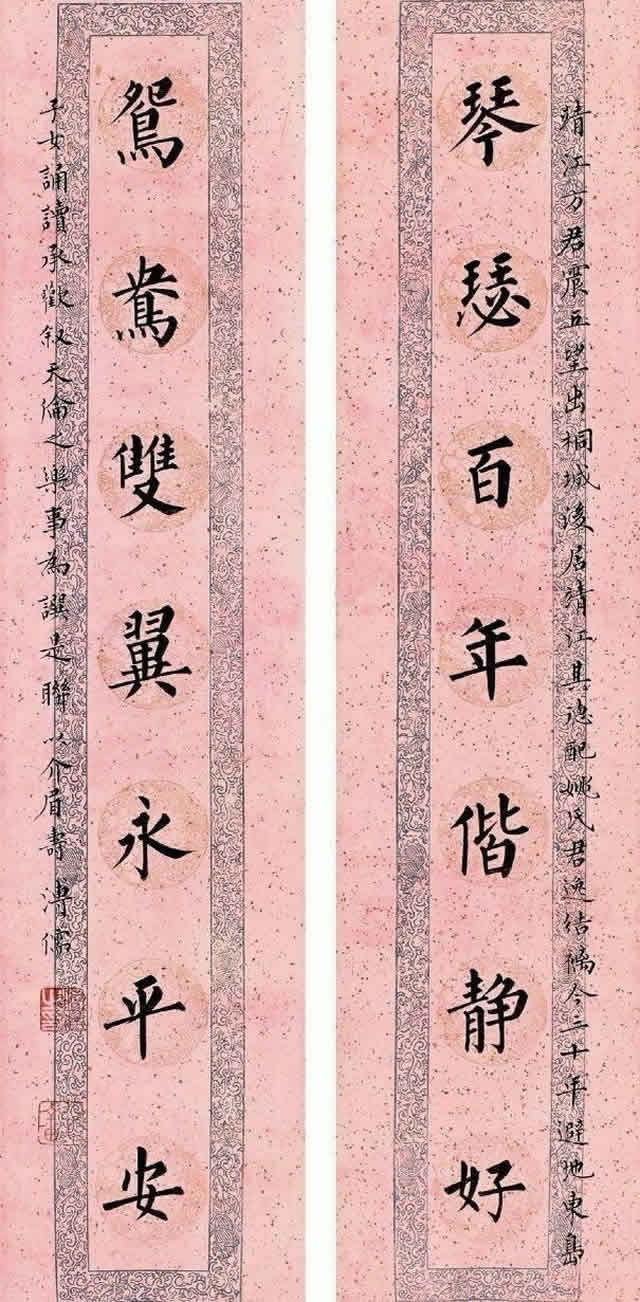 琴瑟百年偕静好
晴江方君震五望出桐城後居清江其德配姚氏君逸结褵今三十年避地東島
鴛鴦雙翼永平安
子女誦讀承歡叙天倫之樂事為譔是聯以介眉壽 溥儒